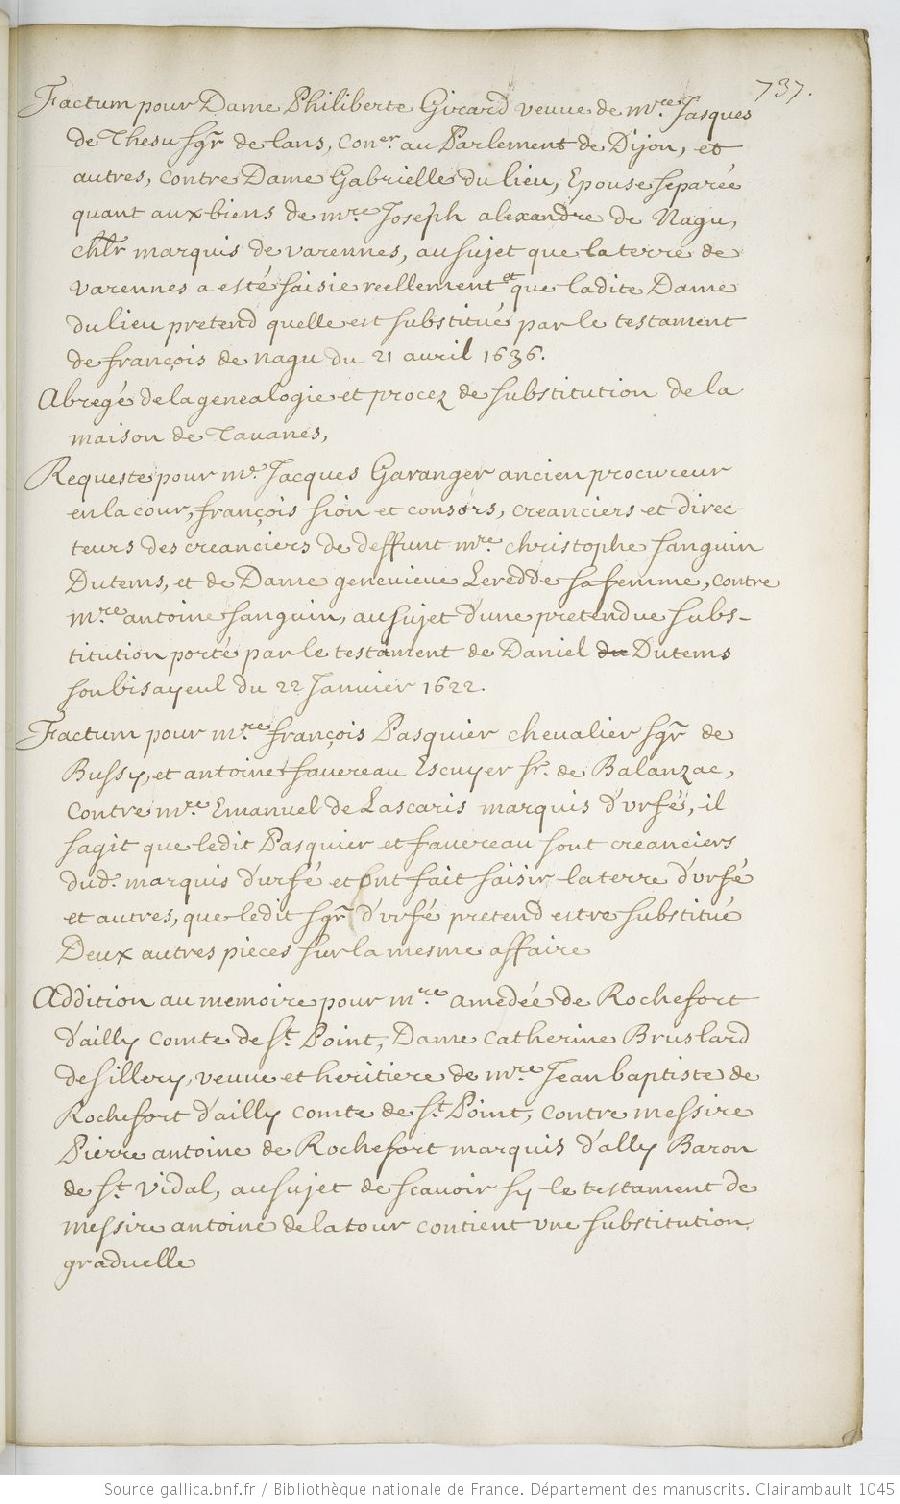 737.
Factum pour Dame Philiberte Girard veuve de mre. Jasques
de Thesu sgr de lans, Coner au Parlement de Dijon, et
autres, contre Dame Gabrielle du lieu, Epouse separée
quant aux biens de mre Joseph alexandre de Nagu,
chlr marquis de varennes, au sujet que la terre de
varennes a esté saisie reellement et que ladite Dame
du lieu pretend quelle est substitué par le testament
de françois de nagu du 21 avril 1636.
Abregé de la genealogie et procez de substitution de la
maison de Tauanes,
Requeste pour mr. Jacques Garanger ancien procureur
en la cour, françois sion et consors, creanciers et direc
teurs des creanciers de deffunt mre. christophe sanguin
Dutems, et de Dame genevieve Leredde sa femme, contre
mre. antoine sanguin, au sujet d'une pretendue subs-
titution porté par le testament de Daniel du Dutems
son bisayeul du 22 Janvier 1622.
Factum pour mre. françois Pasquier chevalier sgr de
Bussy, et antoine favereau Escuyer sr. de Balanzac,
contre mre. Emanuel de Lascaris marquis d'vrfé, il
sagit que ledit Pasquier et favereau sont creanciers
dud. marquis d'urfé et ont fait saisir la terre d'vrfé
et autres, que ledit sgr d'vrfé pretend estre substitué
Deux autres pieces sur la mesme affaire
Addition au memoire pour mre. amedée de Rochefort
d'ailly comte de St. Point, Dame catherine Bruslard
de sillery, veuve et heritiere de mre. Jean baptiste de
Rochefort d'ailly comte de St. Point, contre messire
Pierre antoine de Rochefort marquis d'ally Baron
de St. vidal, au sujet de scavoir sy le testament de
messire antoine de la tour contient vne substitution
graduelle
Source gallica.bnf.fr / Bibliothèque nationale de France. Département des manuscrits. Clairambault 1045